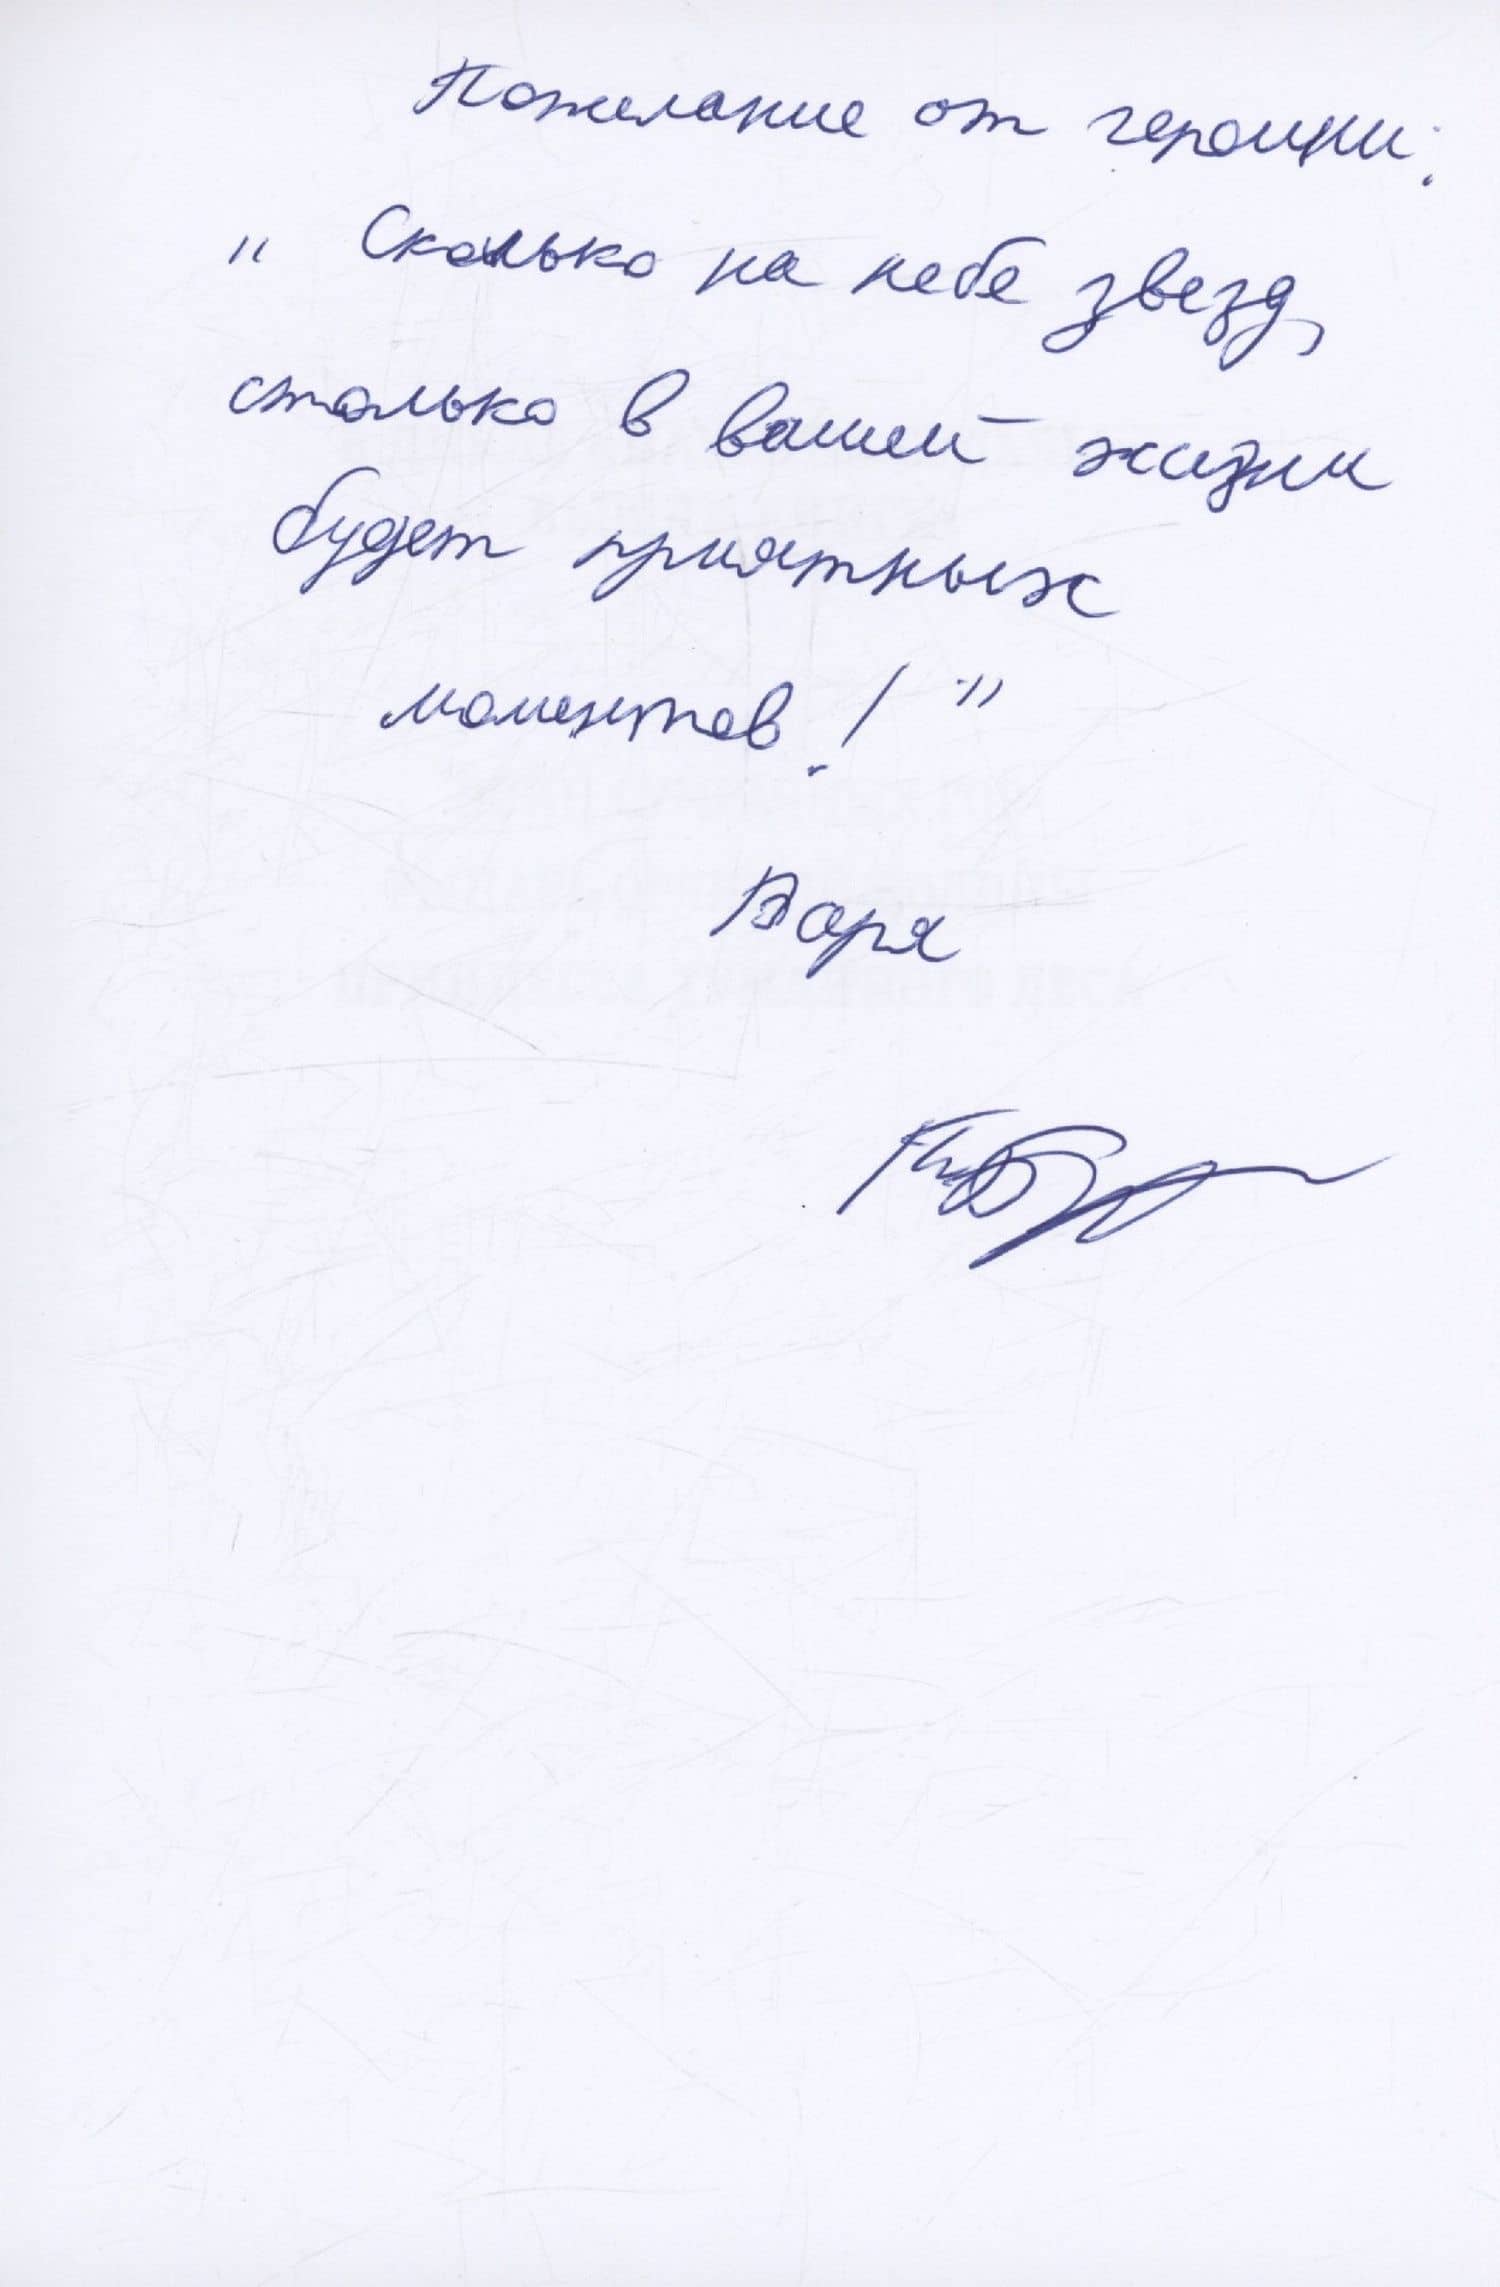 Пожелание от героини:
„ Сколько на небе звезд,
столько в вашей жизни
будет приятных
моментов! ”
Варя